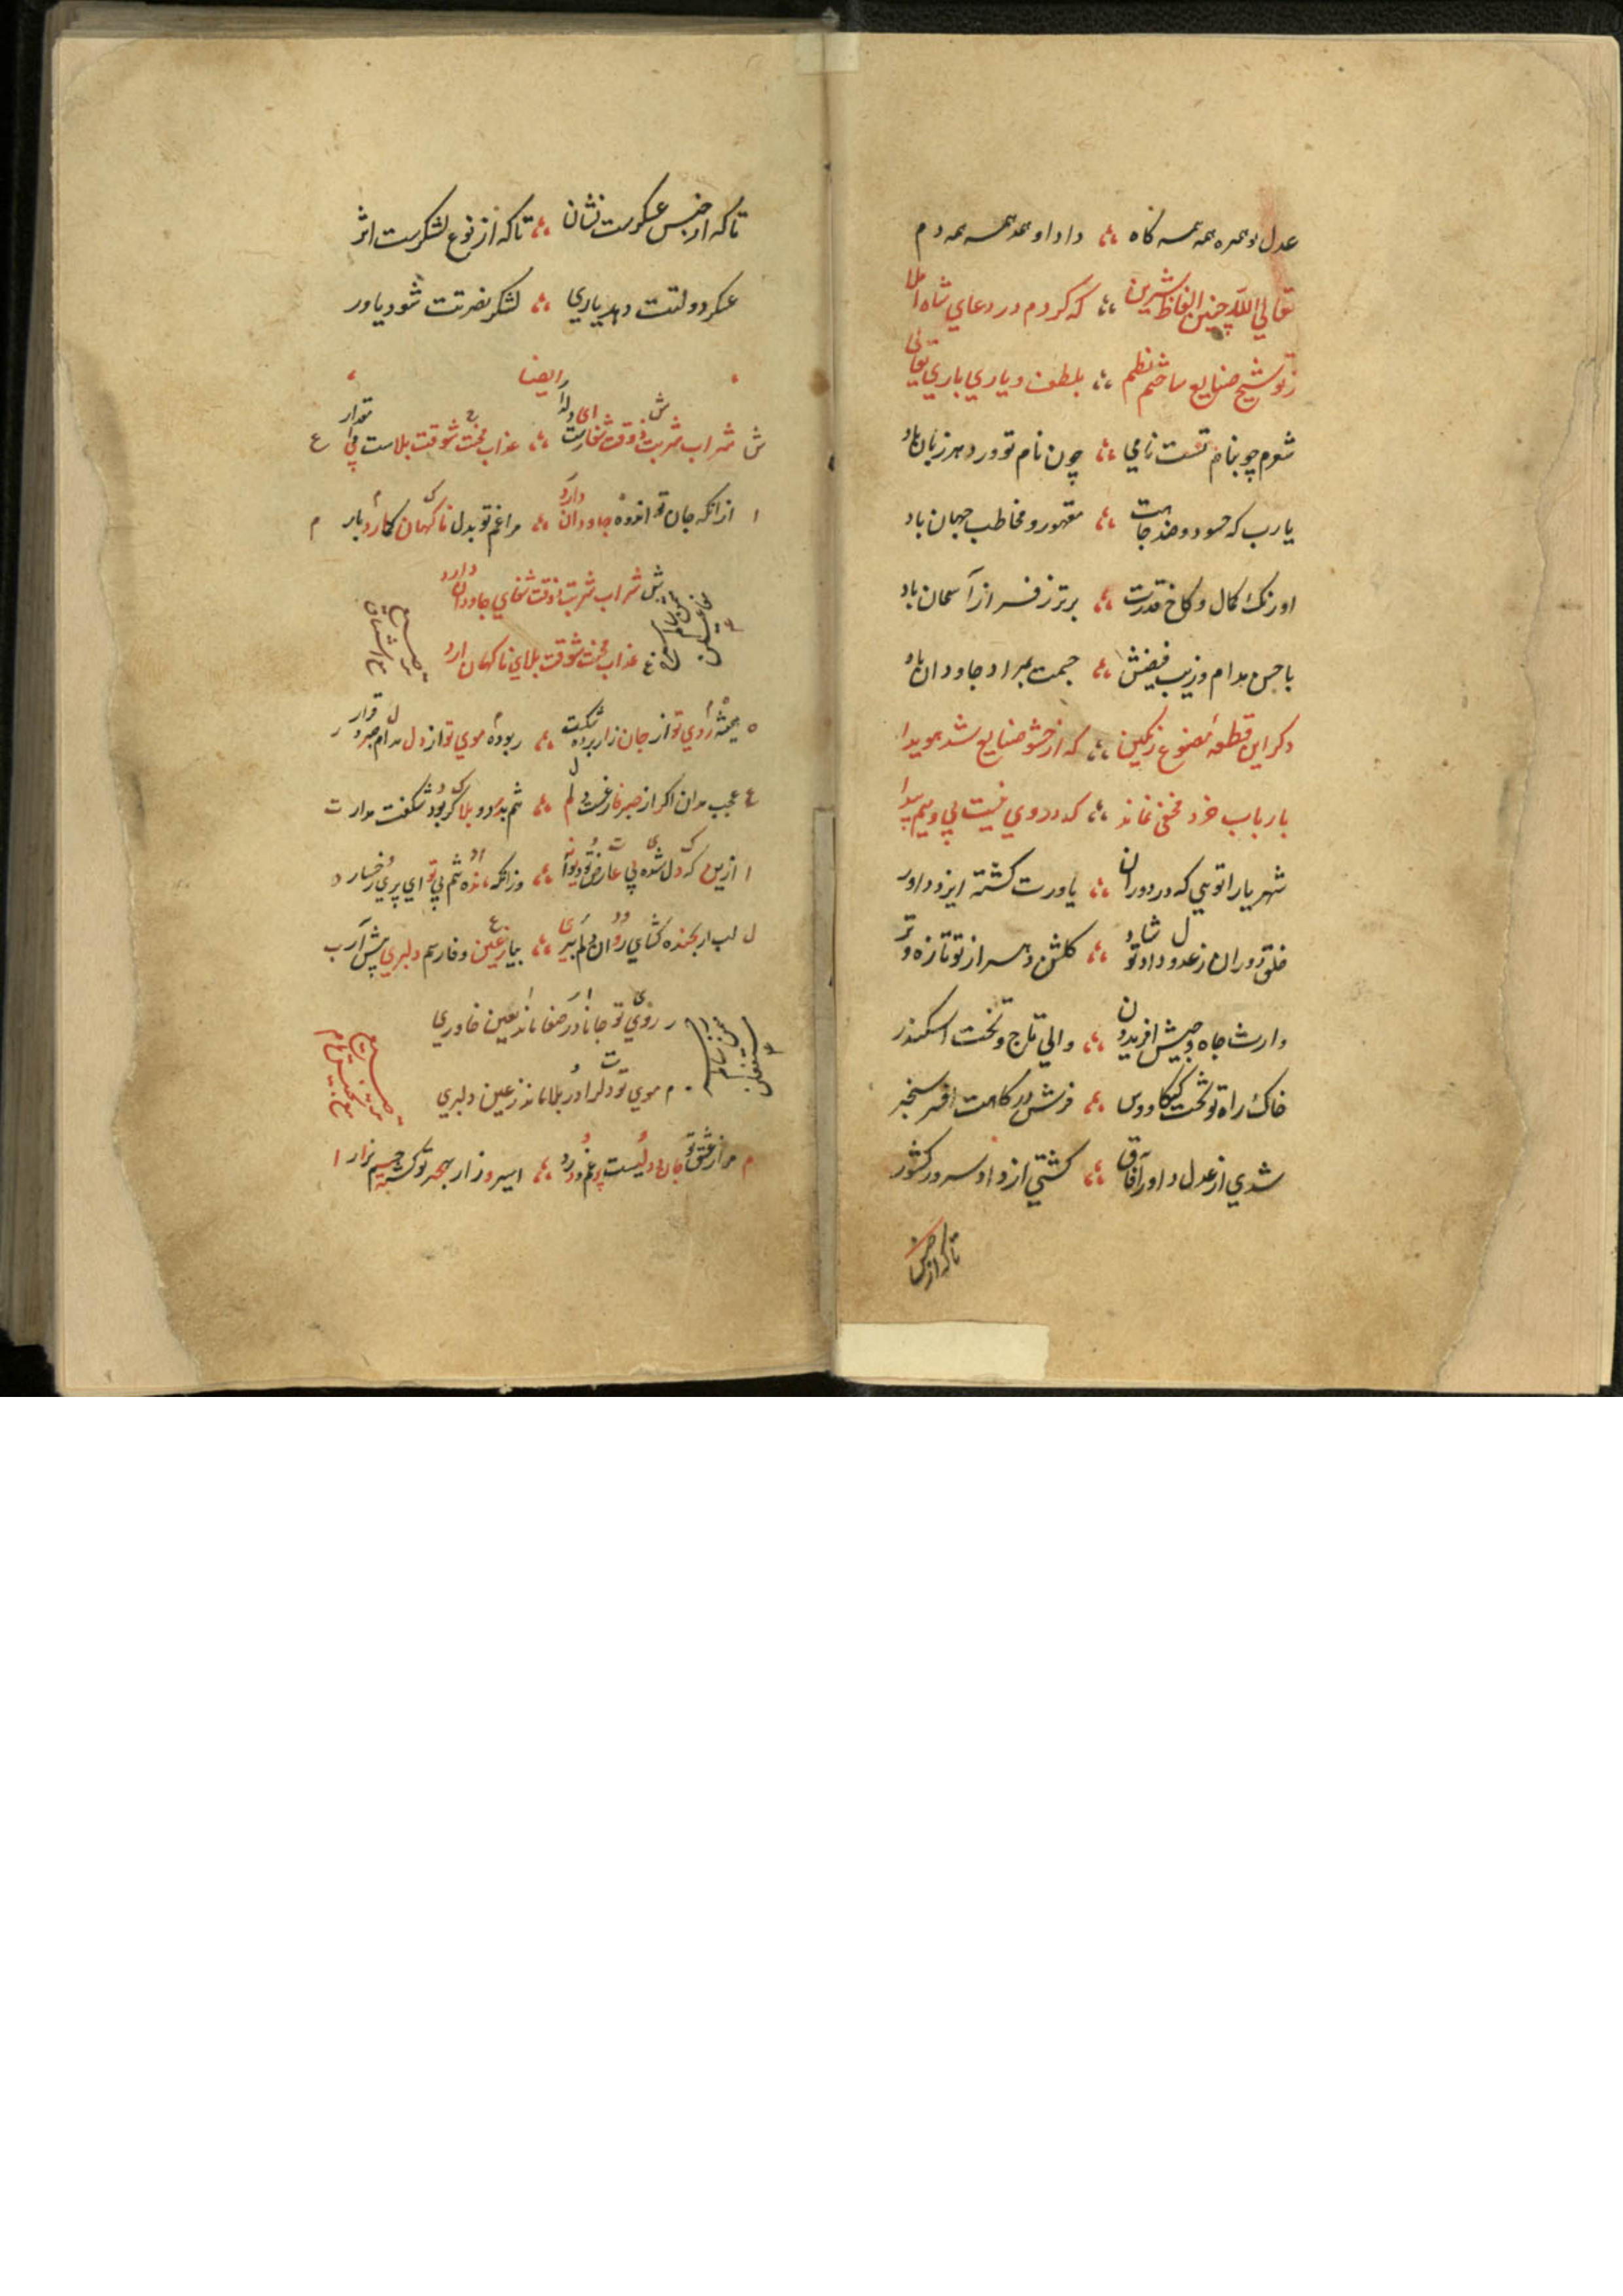 عدل و همره همه همسه کاه ؞ داد او همدمسه همه دم
تعالی الله چنین الفاظ شیرین ؞ که کردم در دعای شاه املا
ز توشیح صنایع ساختم نظم ؞ بلطف و یاری باری تعالی
شوم چو بنام تست نامی ؞ چون نام تو ورد هر زبان باد
یارب که حسود و ضد جاهت ؞ مقهور و مخاطب جهان باد
اورنک کمال و کاخ قدرت ؞ برتر ز فراز آسمان باد
با مدام و زیب فیضش ؞ جمت بمراد جاودان باد
دکر این قطعهٔ مصنوع رنکین ؞ که از حشو صنایع شد هویدا
بارباب خرد مخفی نماند ؞ که در وی نیست پی و بیم پیدا
شهریارا تویی که در دوران ؞ یاورت کشته ایزد داور
خلق دوران ز عدل و داد تو شاد ؞ کلشن دهر از تو تازه و تر
وارث جاه و جیش افریدون ؞ والی تاج و تخت اسکندر
خاک راه تو تخت کیکاووس ؞ فرش درکاهت افسر سنجر
شدی از عدل داور آفاق ؞ کشتی از داد سرور کشور
تا که از جنس
تا که از جنس عسکرست نشان ؞ تا که از نوع لشکرست اثر
عسکر دولتت دهد یاری ؞ لشکر نصرتت شود یاور
ایضا
ش شراب شربت ذوقت شفاست ای دلدار ؞ عذاب محنت شوقت بلاست بی مقدار ع
ا ازانکه جان تو اندوه جاودان دارد ؞ مرا غم تو بدل ناکهان کمارد بار م
ش شراب شربت ذوقت شفای جاودان دارد
ع عذاب محنت شوقت بلای ناکهان ارد
ه همیشه روی تو از جان زار برده شکیب ؞ ربوده موی تو از دل مدام صبر و قرار ر
ع عجب مدان اکر از صبر فارغست دلم ؞ شم بدرد و بلا کر بود شکفت مدار ت
ا ازین که دل شده بی عارض تو دیوانه ؞ وزانکه مانده شم بی تو ای پری رخسار د
ل لب ار بخنده کشای روان و دلم ببری ؞ بیا ز عین وفا رسم دلبری پیش آر ب
ر روی تو جانا در صفا ماند بعین خاوری
م موی تو دلرا در بلا ماند ز عین دلبری
م مرا ز عشق تو جان و دلیست پر غم و درد ؞ اسیر و زار بهجر تو کشته جسم نزار ا